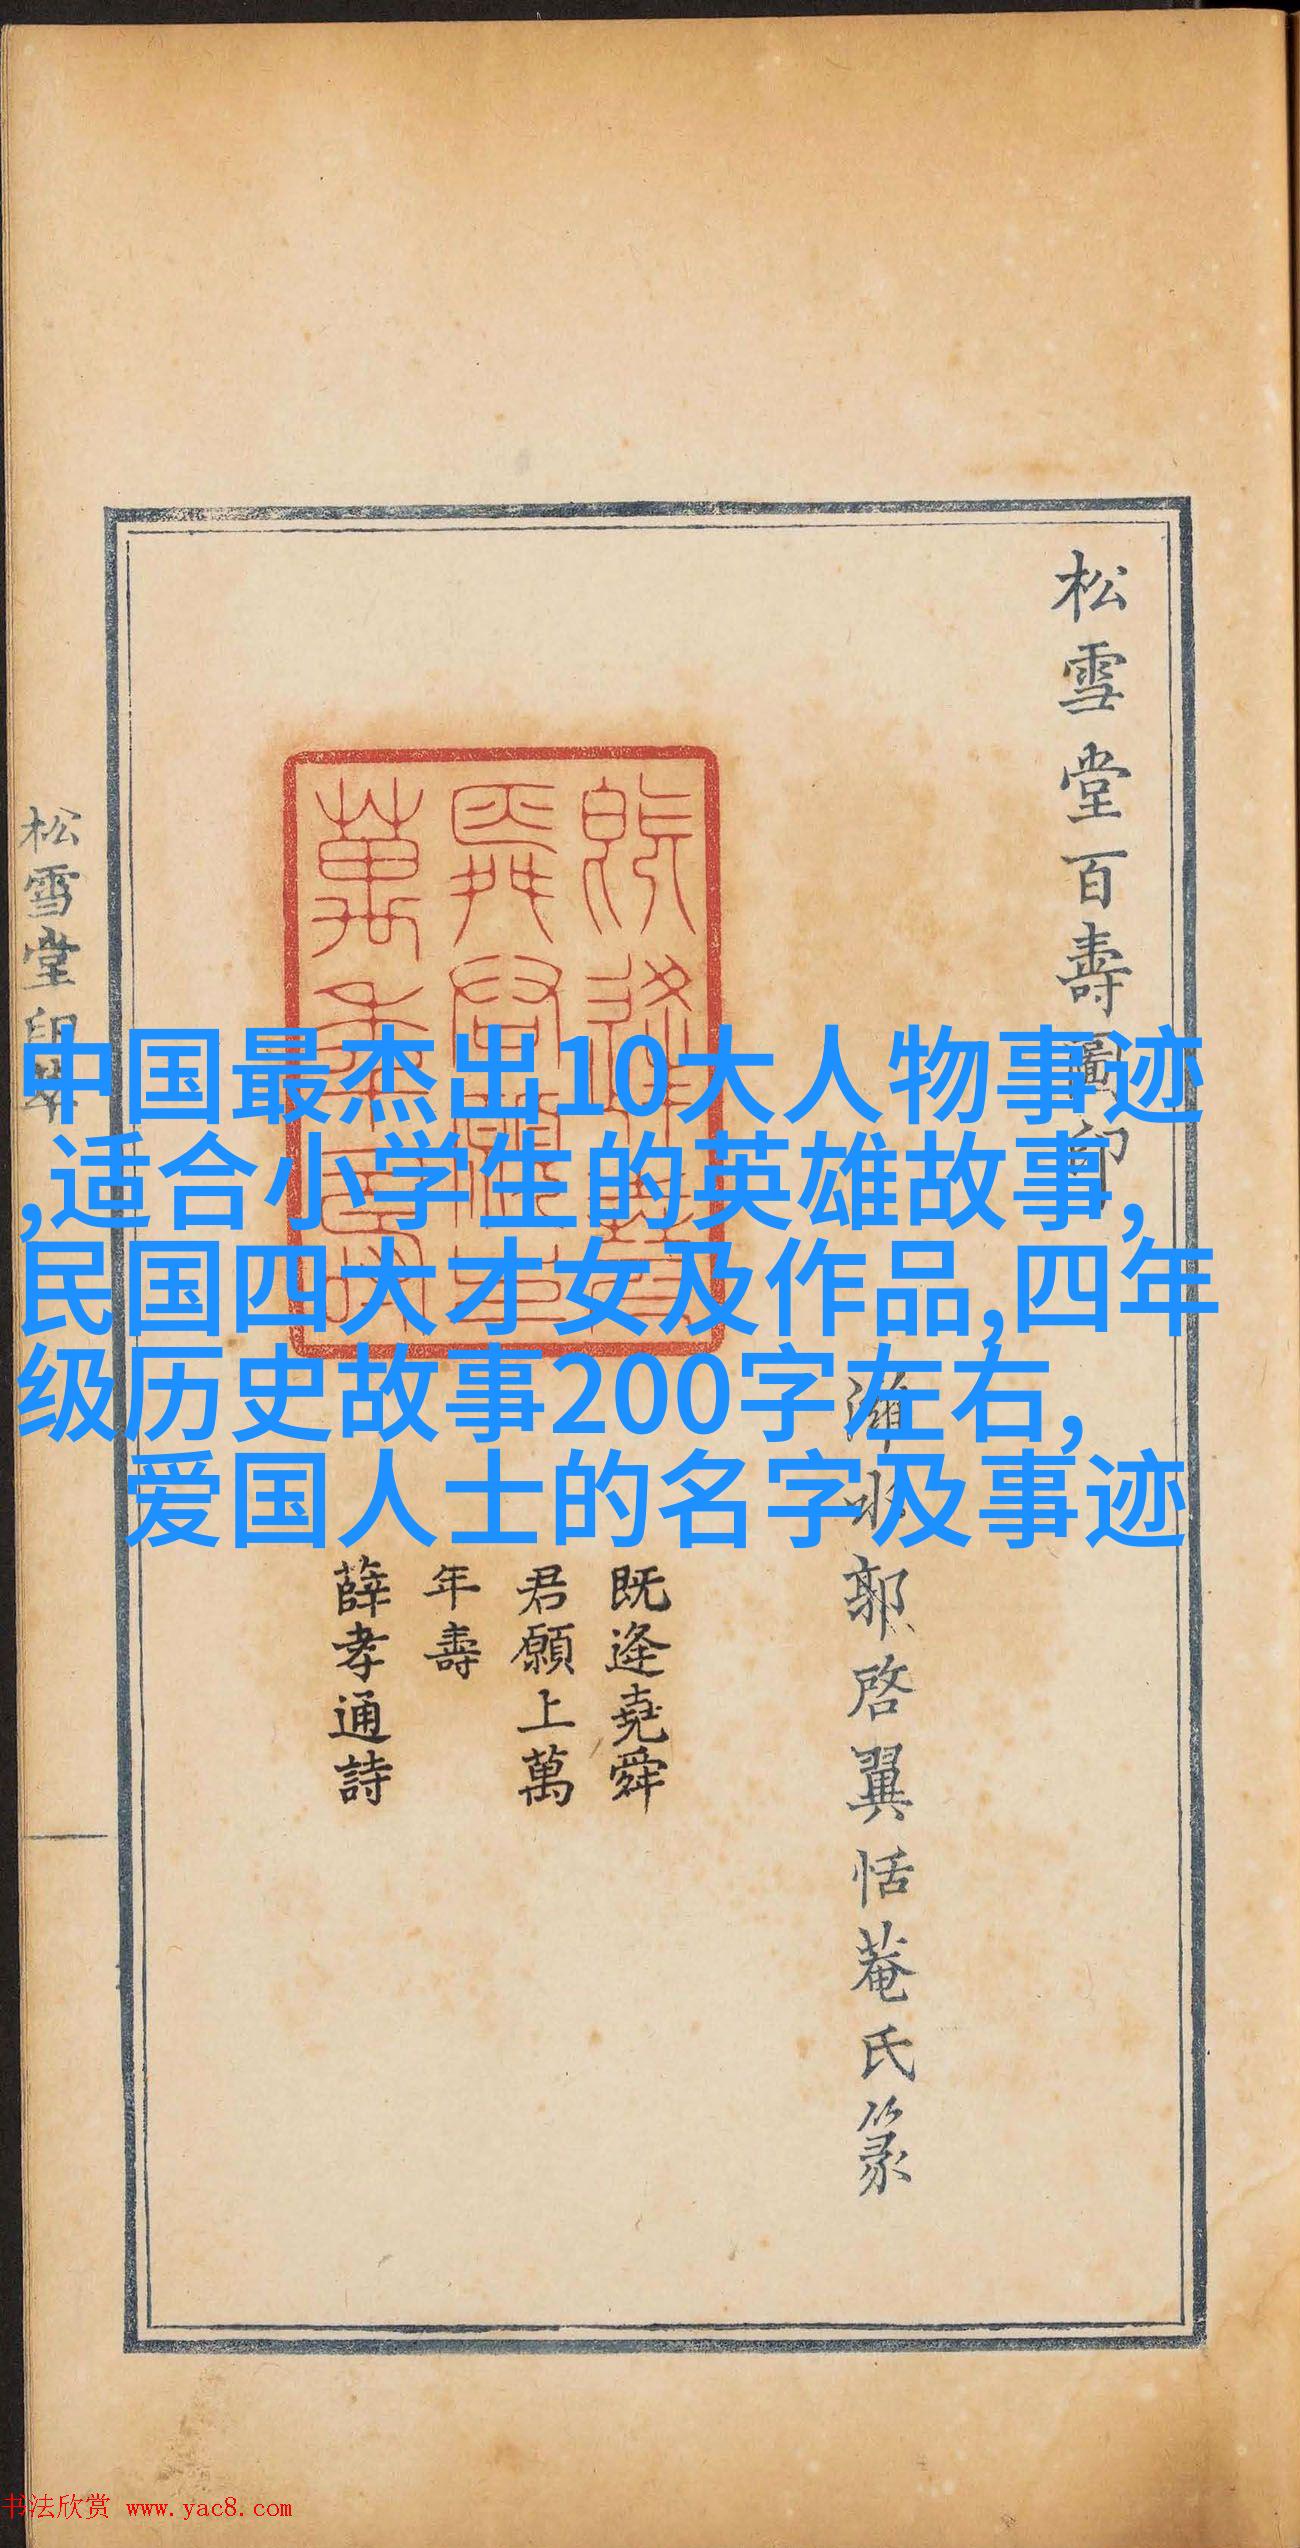 松雪堂百壽圖印
濰水郭啓翼恬菴氏篆
既逢堯舜
君願上萬
年壽
薛孝通詩
松雪堂印萃
中国最杰出10大人物事迹
,适合小学生的英雄故事,
民国四大才女及作品,四年
级历史故事200字左右,
爱国人士的名字及事迹
书法欣赏 www.yac8.com